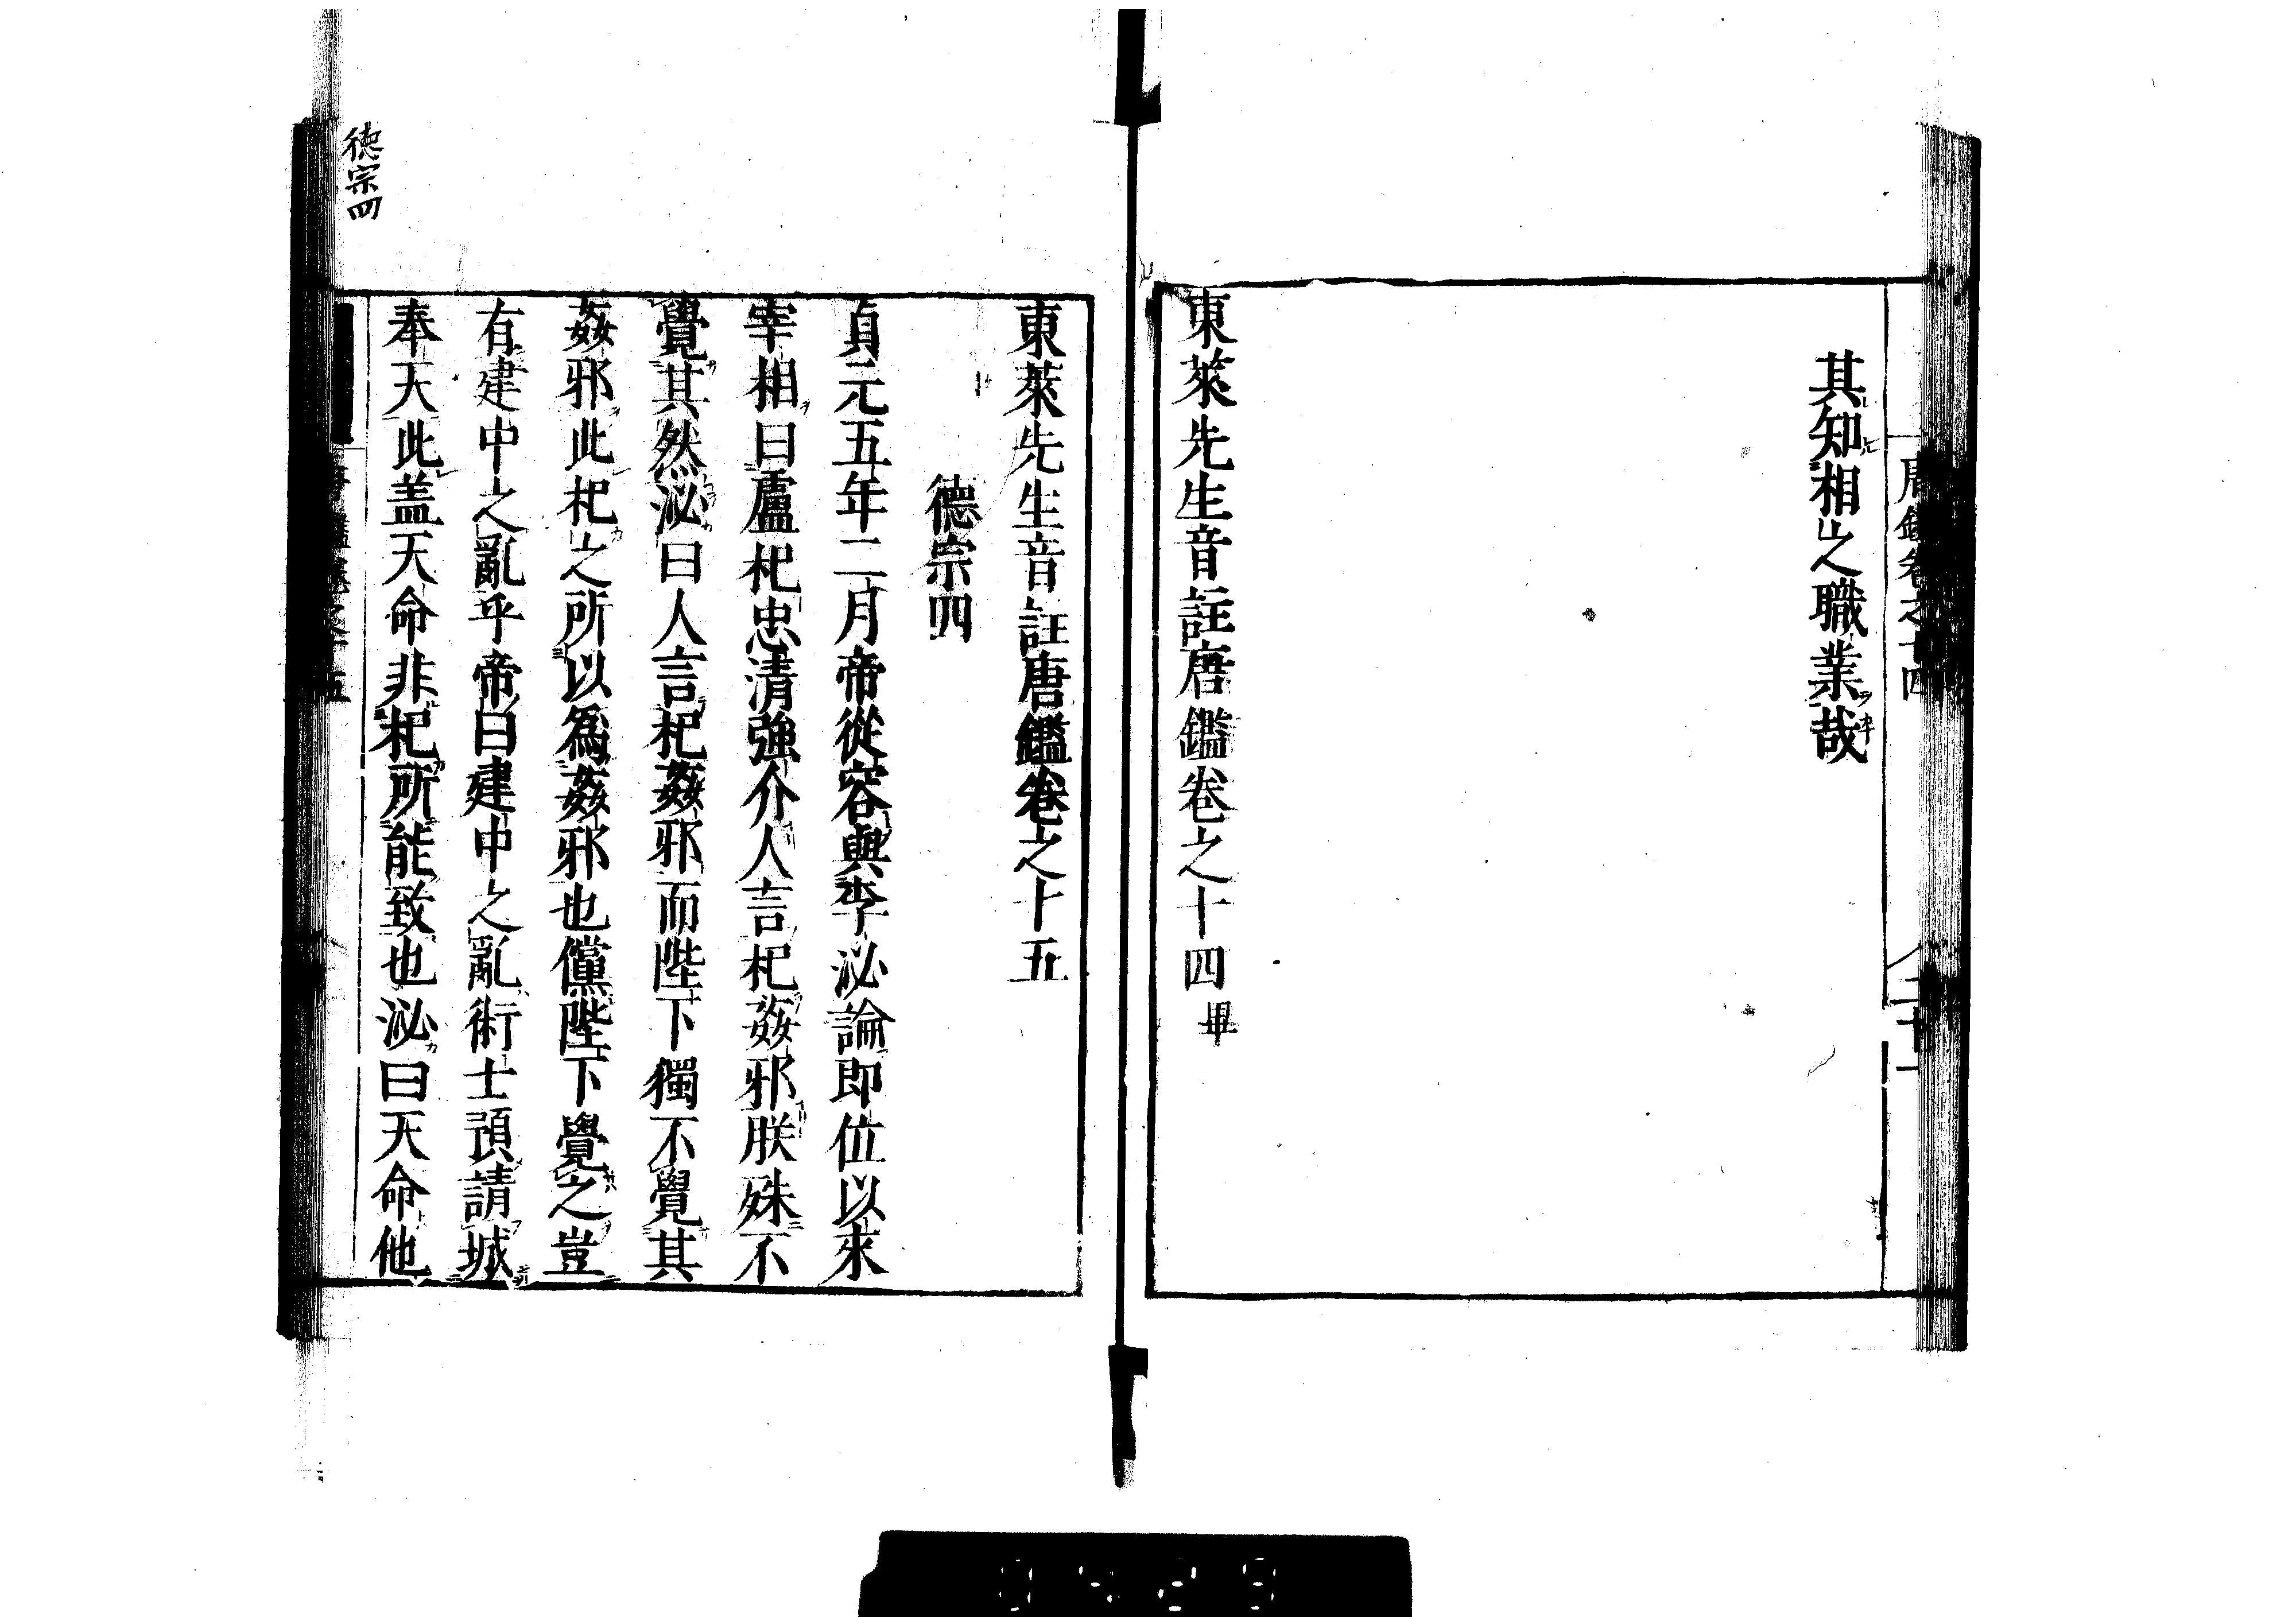 唐鑑卷之十四
其知相之職業哉
東萊先生音註唐鑑卷之十四畢
東萊先生音註唐鑑卷之十五
德宗四
貞元五年二月帝從容與李泌論即位以來
宰相曰盧杞忠清強介人言杞姦邪朕殊不
覺其然泌曰人言杞姦邪而陛下獨不覺其
姦邪此杞之所以爲姦邪也儻陛下覺之豈
有建中之亂乎帝曰建中之亂術士預請城
奉天此盖天命非杞所能致也泌曰天命他
德宗四